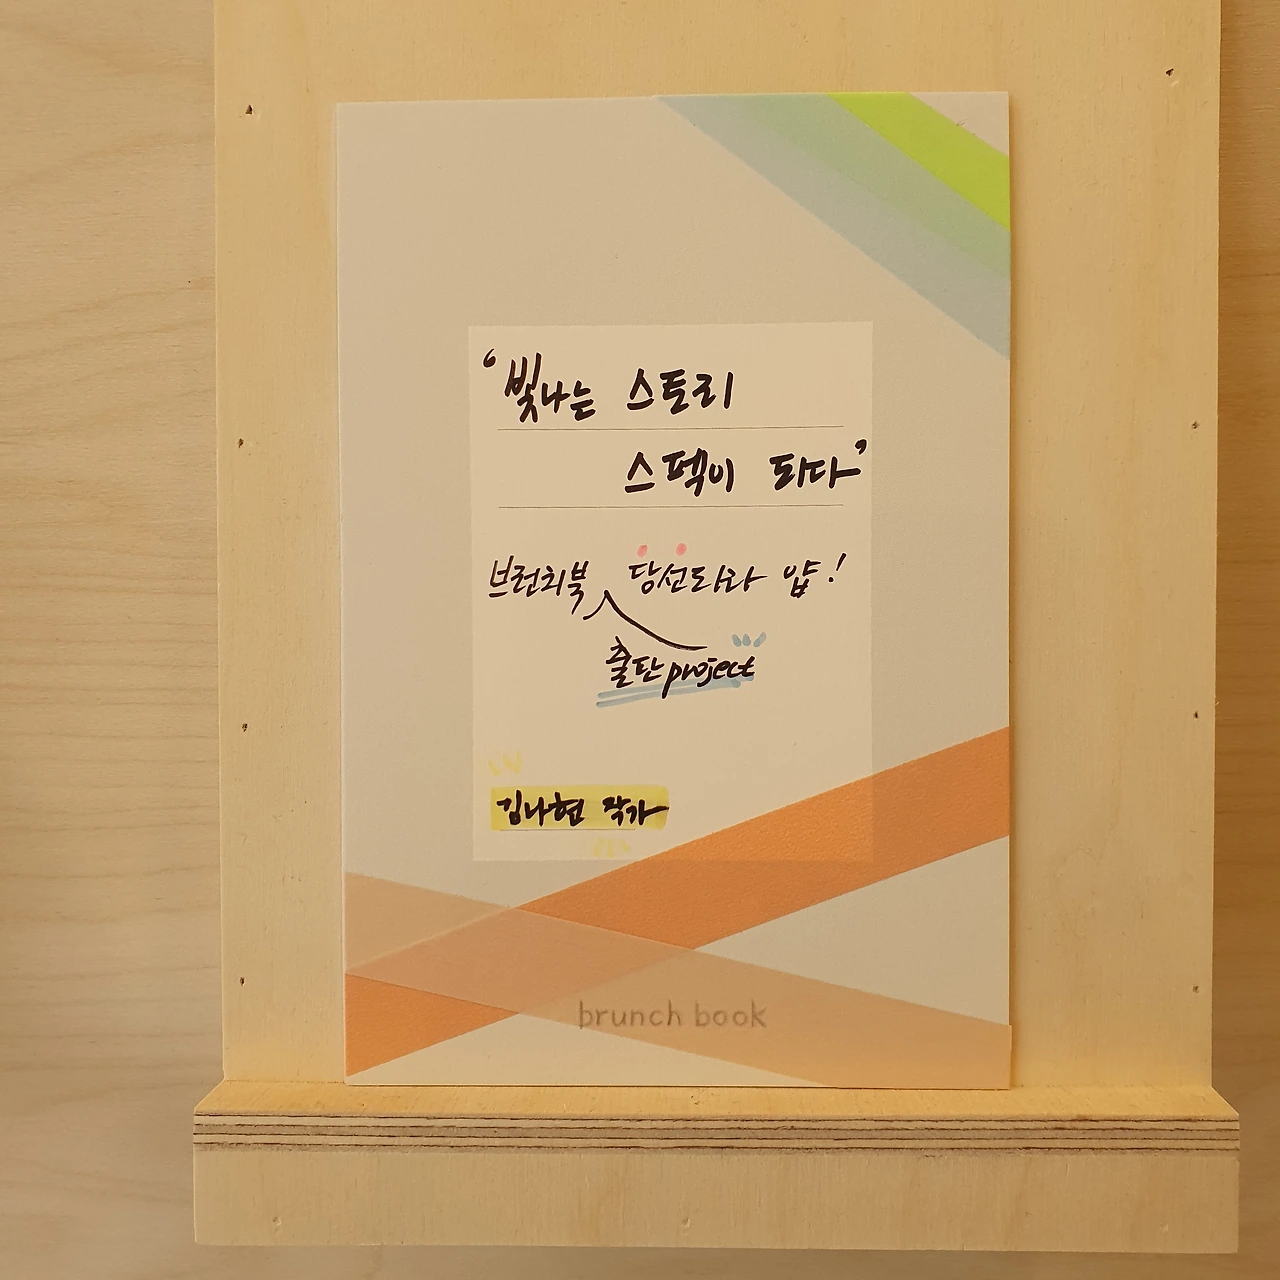 ‘빛나는 스토리
스펙이 되다’
브런치북 당선되라 얍!
출판 project
김나현 작가
brunch book